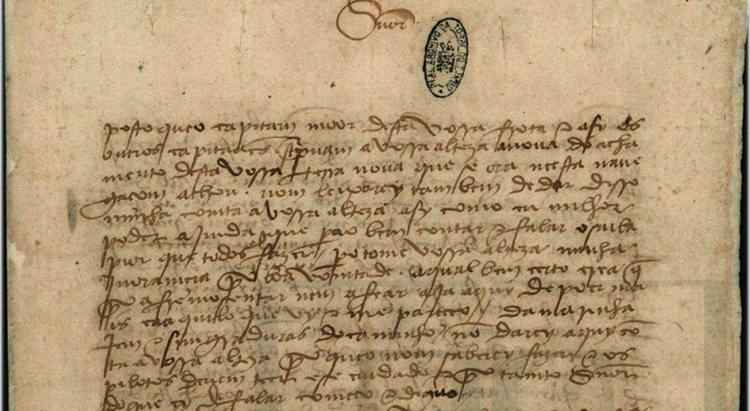 Snor
posto queo capitam moor desta vossa frota e asy os
outros capitaães screpuam a vossa alteza a noua do acha
mento desta vossa terra noua que se ora neesta naue
gaçom achou. nom leixarey tambem de dar disso
minha comta a vossa alteza asy como eu milhor
poder ajmda que pera o bem contar e falar o saiba
pior que todos fazer. pero tome vossa alteza minha
jnoramçia por boa vomtade. aqual bem çerto crea q̃
por afremosentar nem afear aja aquy de poer ma
is caa quilo que vy e me pareçeo. da marinha
jem e simgraduras do caminho nõ darey aquy cõ
ta a vossa alteza por queo nom saberey fazer e os
pilotos deuem teer ese cuidado e por tamto Snor
do que ey de falar começo e diguo